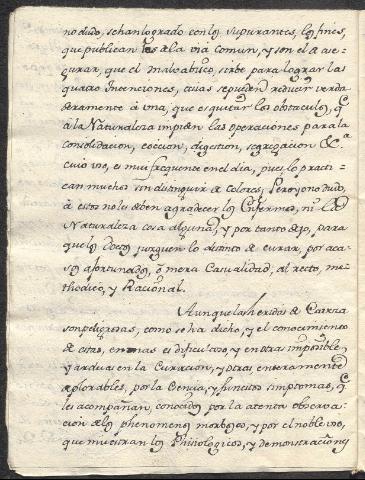 no dudo, se han logrado con los supurantes, los fines,
que publican los de la via comun, y son el de ase-
gurar, que el Malvabisco, sirbe para lograr las
quatro Intenciones, cuias se pueden reducir verda-
deramente á una, que es quitar los obstaculos, q.
á la Naturaleza impiden las operaciones para la
consolidacion, coccion, digestion, segregacion &.a
cuio uso, es mui frequente en el dia, pues lo practi-
can muchos sin distinguir de colores, Pero yo no dudo,
á estos no les deben agradecer los Enfermos, ni la
Naturaleza cosa alguna, y por tanto dejo, para
que los Doctos jusguen lo distinto de curar, por aca-
sos afortunados, ó mera Casualidad; al recto, me-
thodico, y Racional.
Aunque las heridas de Cabeza
son peligrosas, como se ha dicho, y el conocimiento
de estas, en unas es dificultoso, y en otras imposible,
y ardua en la Curacion, y otras enteramente
deplorables, por la Esencia, y funestos simptomas, q.
les acompañan, conocidos por la atenta observa-
cion de los phenomenos morbosos, y por el noble uso,
que muestran los Phisiologicos, y demonstraciones